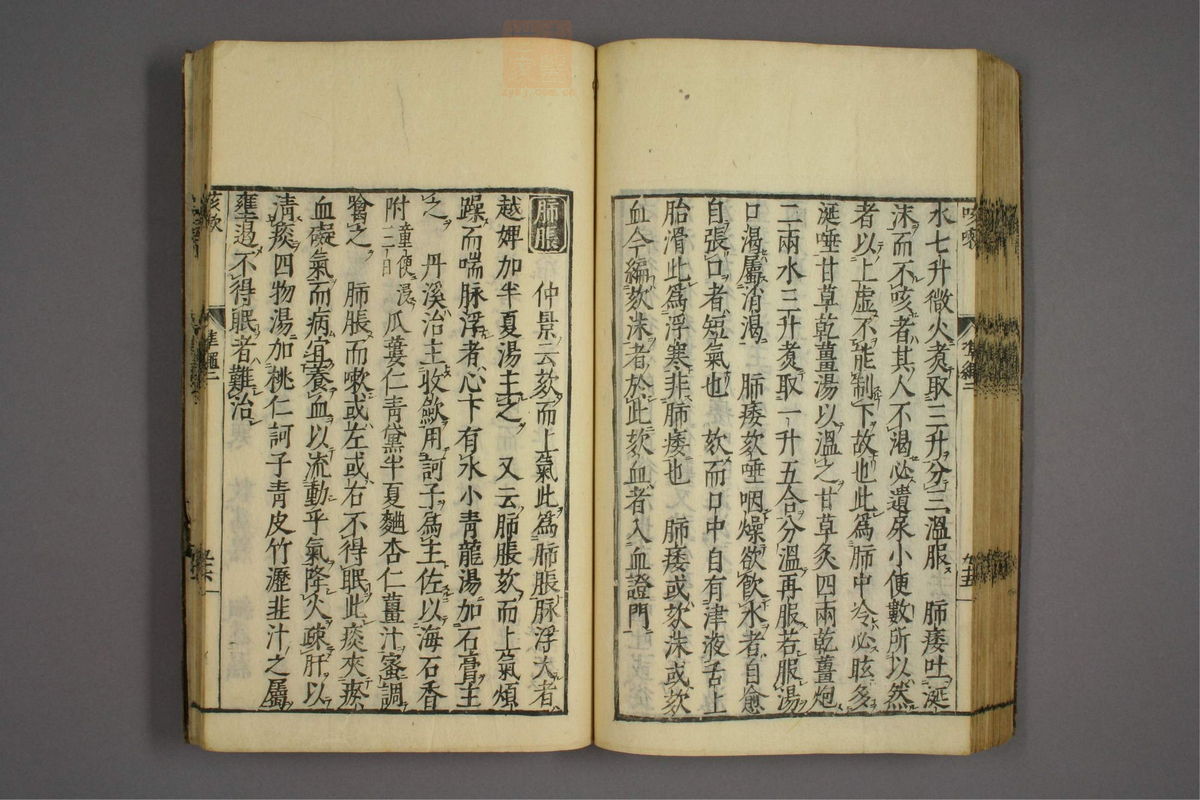 水七升微火煑取三升分三溫服　肺痿吐涎
沫而不咳者其人不渴必遺尿小便數所以然
者以上虛不能制下故也此爲肺中冷必眩多
涎唾甘草乾薑湯以溫之甘草灸四兩乾薑炮
二兩水三升煑取一升五合分溫再服若服湯
口渴屬消渴　肺痿欬唾咽燥欲飮水者自愈
自張口者短氣也　欬而口中自有津液舌上
胎滑此爲浮寒非肺痿也　肺痿或欬沫或欬
血今編欬沫者於此欬血者入血證門
肺脹　仲景云欬而上氣此爲肺脹脉浮大者
越婢加半夏湯主之　又云肺脹欬而上氣煩
躁而喘脉浮者心下有水小青龍湯加石膏主
之　丹溪治主收歛用訶子爲主佐以海石香
附童便浸三日瓜蔞仁青黛半夏麯杏仁薑汁蜜調
噙之　肺脹而嗽或左或右不得眠此痰夾瘀
血礙氣而病宜養血以流動乎氣降火疎肝以
淸痰四物湯加桃仁訶子青皮竹瀝韭汁之屬
壅遏不得眠者難治
咳嗽
準繩二